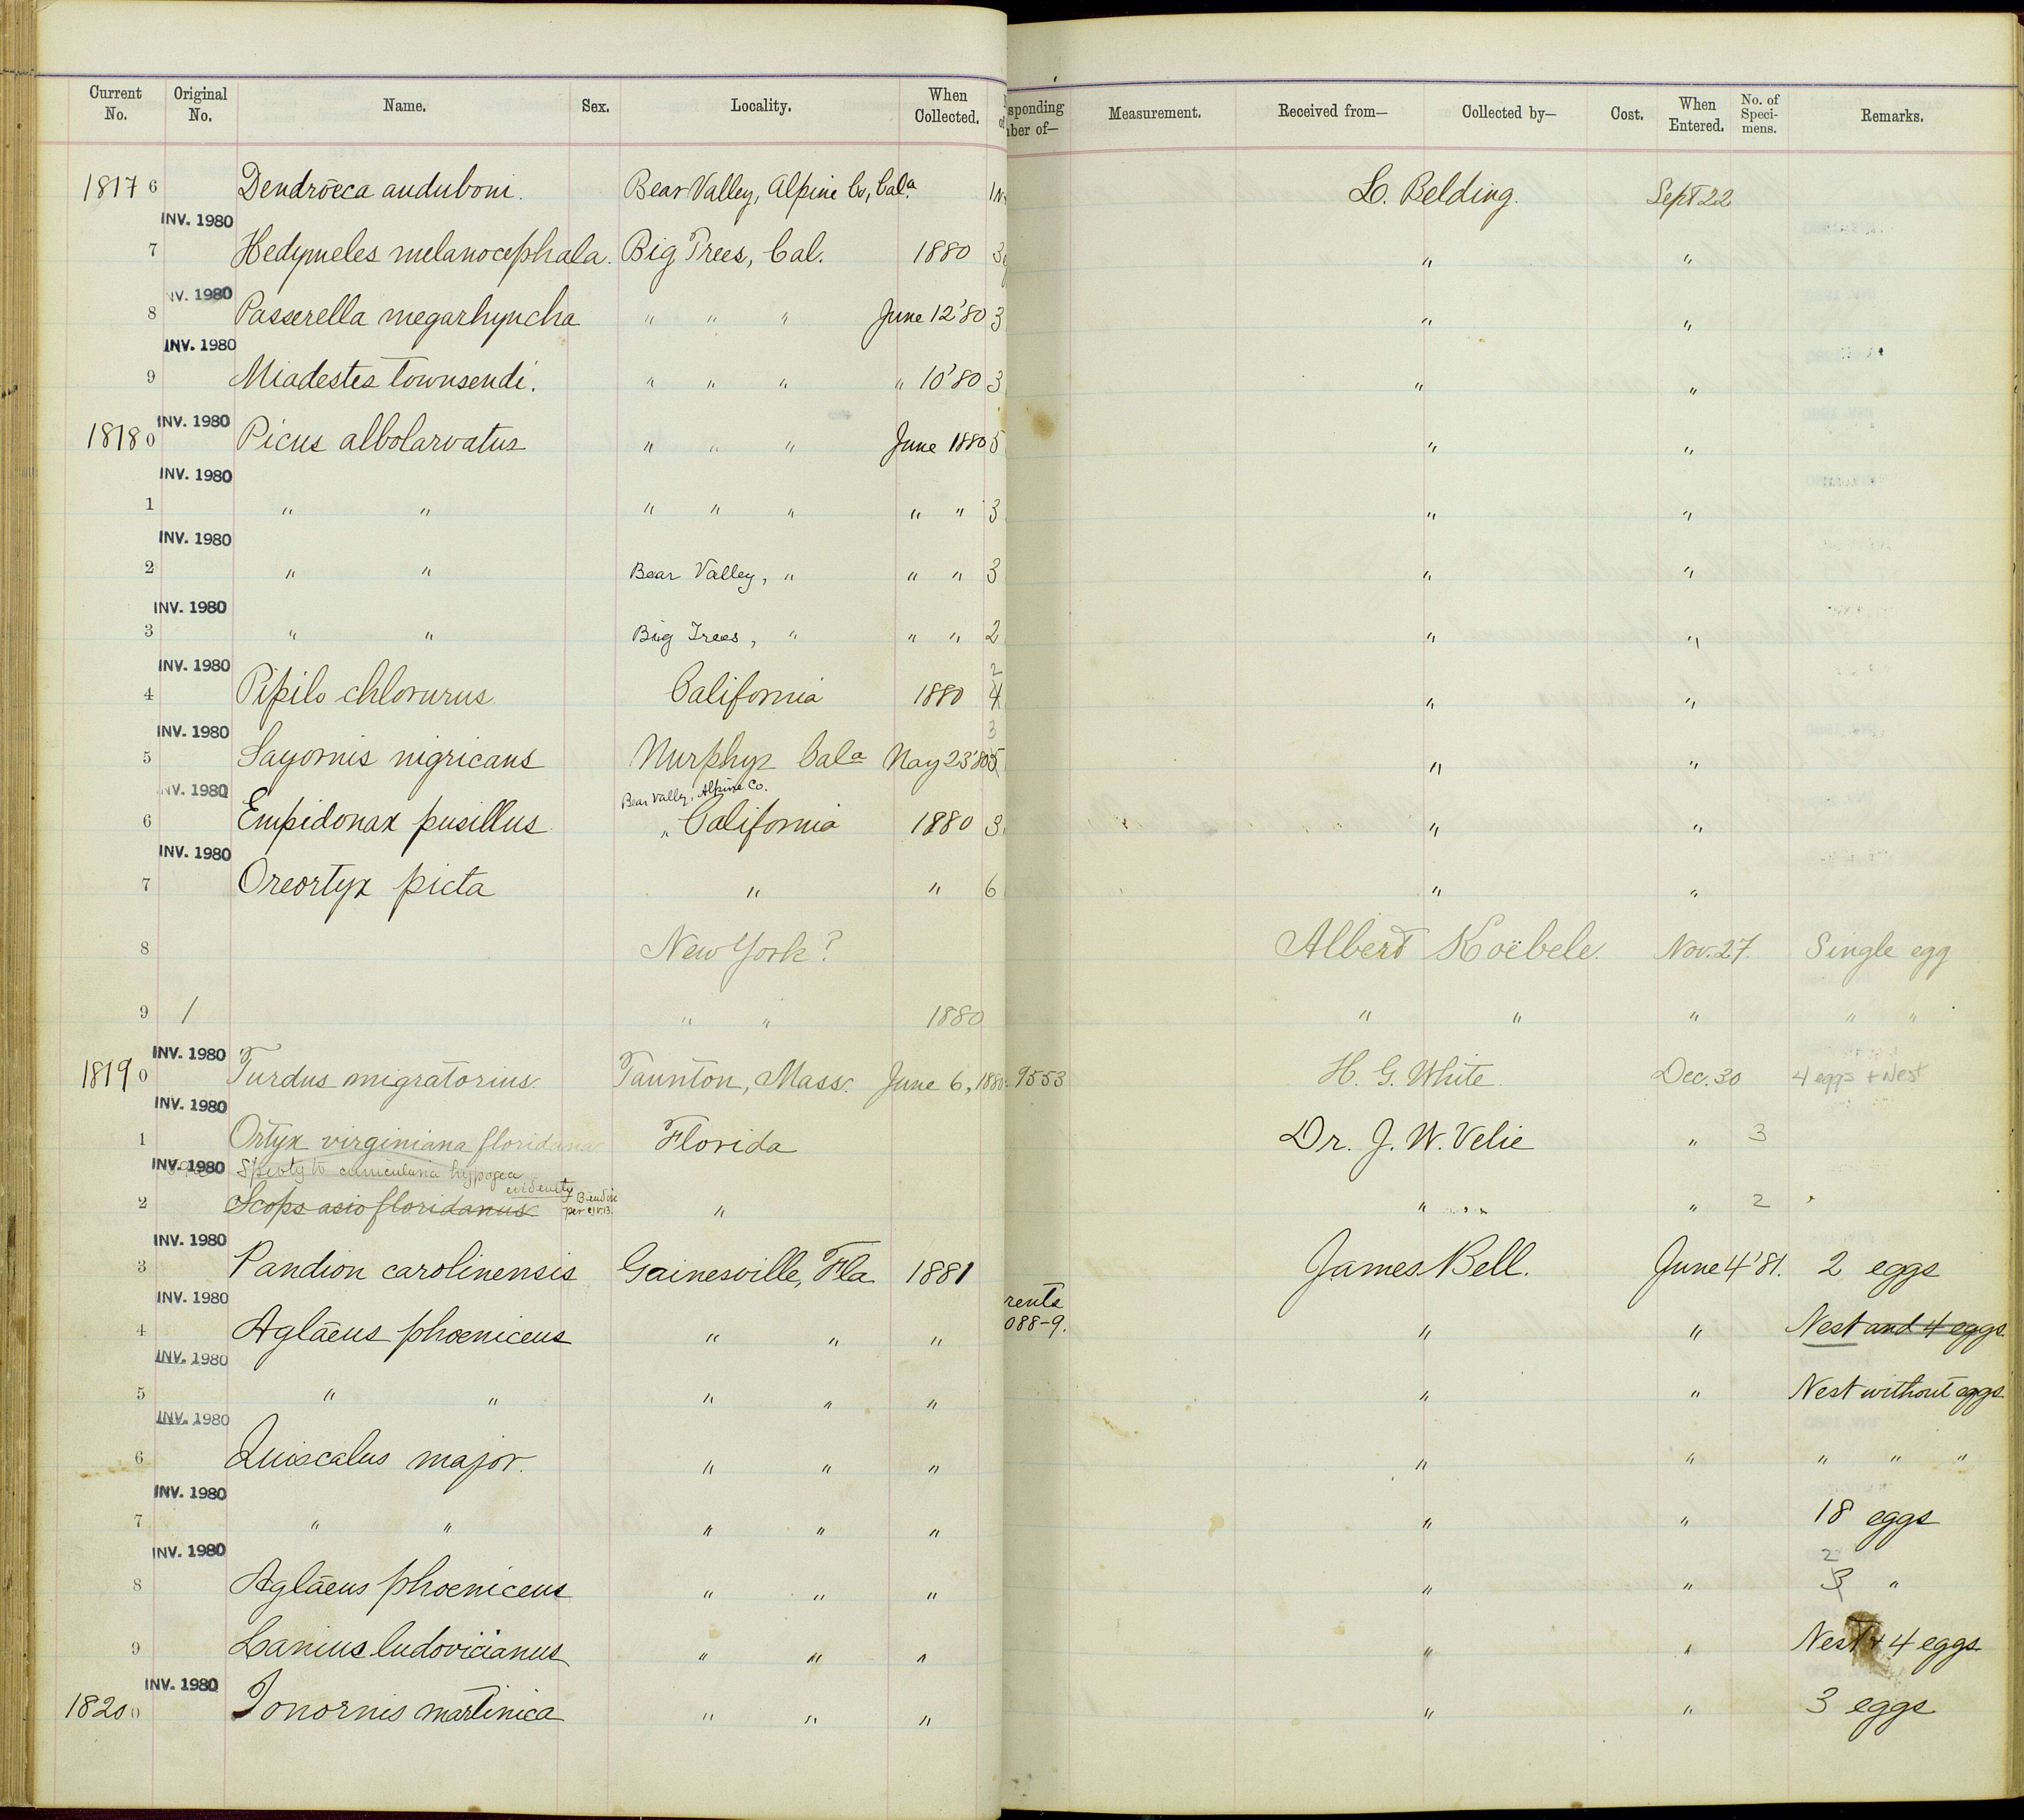 Current No. Original No. Name. Sex. Locality. When Collected. sponding ber of— Measurement. Received from— Collected by— Cost. When Entered. No. of Specimens. Remarks.
1817 6 Dendrœca auduboni. Bear Valley, Alpine Co, Cala. 1 N L. Belding. Sept 22
INV. 1980
7 Hedymeles melanocephala. Big Trees, Cal. 1880 3 " "
INV. 1980
8 Passerella megarhyncha " " " June 12 '80 3 " "
INV. 1980
9 Miadestes townsendi. " " " " 10 '80 3 " "
INV. 1980
1818 0 Picus albolarvatus " " " June 1880 5 " "
INV. 1980
1 " " " " " " " 3 " "
INV. 1980
2 " " Bear Valley, " " " 3 " "
INV. 1980
3 " " Big Trees, " " " 2 " "
INV. 1980 2
4 Pipilo chlorurus California 1880 4 " "
INV. 1980 3
5 Sayornis nigricans Murphys Cala May 23 '80 5 " "
INV. 1980 Bear Valley, Alpine Co.
6 Empidonax pusillus " California 1880 3 " "
INV. 1980
7 Oreortyx picta " " 6 " "
8 New York? Albert Koëbele. Nov. 27. Single egg
9 1 " " 1880 " " " " "
INV. 1980
1819 0 Turdus migratorius Taunton, Mass. June 6, 1880. 9553 H. G. White. Dec. 30 4 eggs + Nest
INV. 1980
1 Ortyx virginiana floridana Florida Dr. J. W. Velie " 3
INV. 1980 Speotyto cunicularia hypogea
evidently Bendire
2 Scops asio floridanus " " " 2
INV. 1980
3 Pandion carolinensis Gainesville, Fla 1881 James Bell. June 4 '81. 2 eggs
INV. 1980 rents
4 Aglæus phoeniceus " " " 088-9. " " Nest and 4 eggs
INV. 1980
5 " " " " " " " Nest without eggs
INV. 1980
6 Quiscalus major. " " " " " " " "
INV. 1980
7 " " " " " " " 18 eggs
INV. 1980 2
8 Aglæus phoeniceus " " " " " 3 "
9 Lanius ludovicianus " " " " " Nest + 4 eggs
INV. 1980
1820 0 Ionornis martinica " " " " " 3 eggs